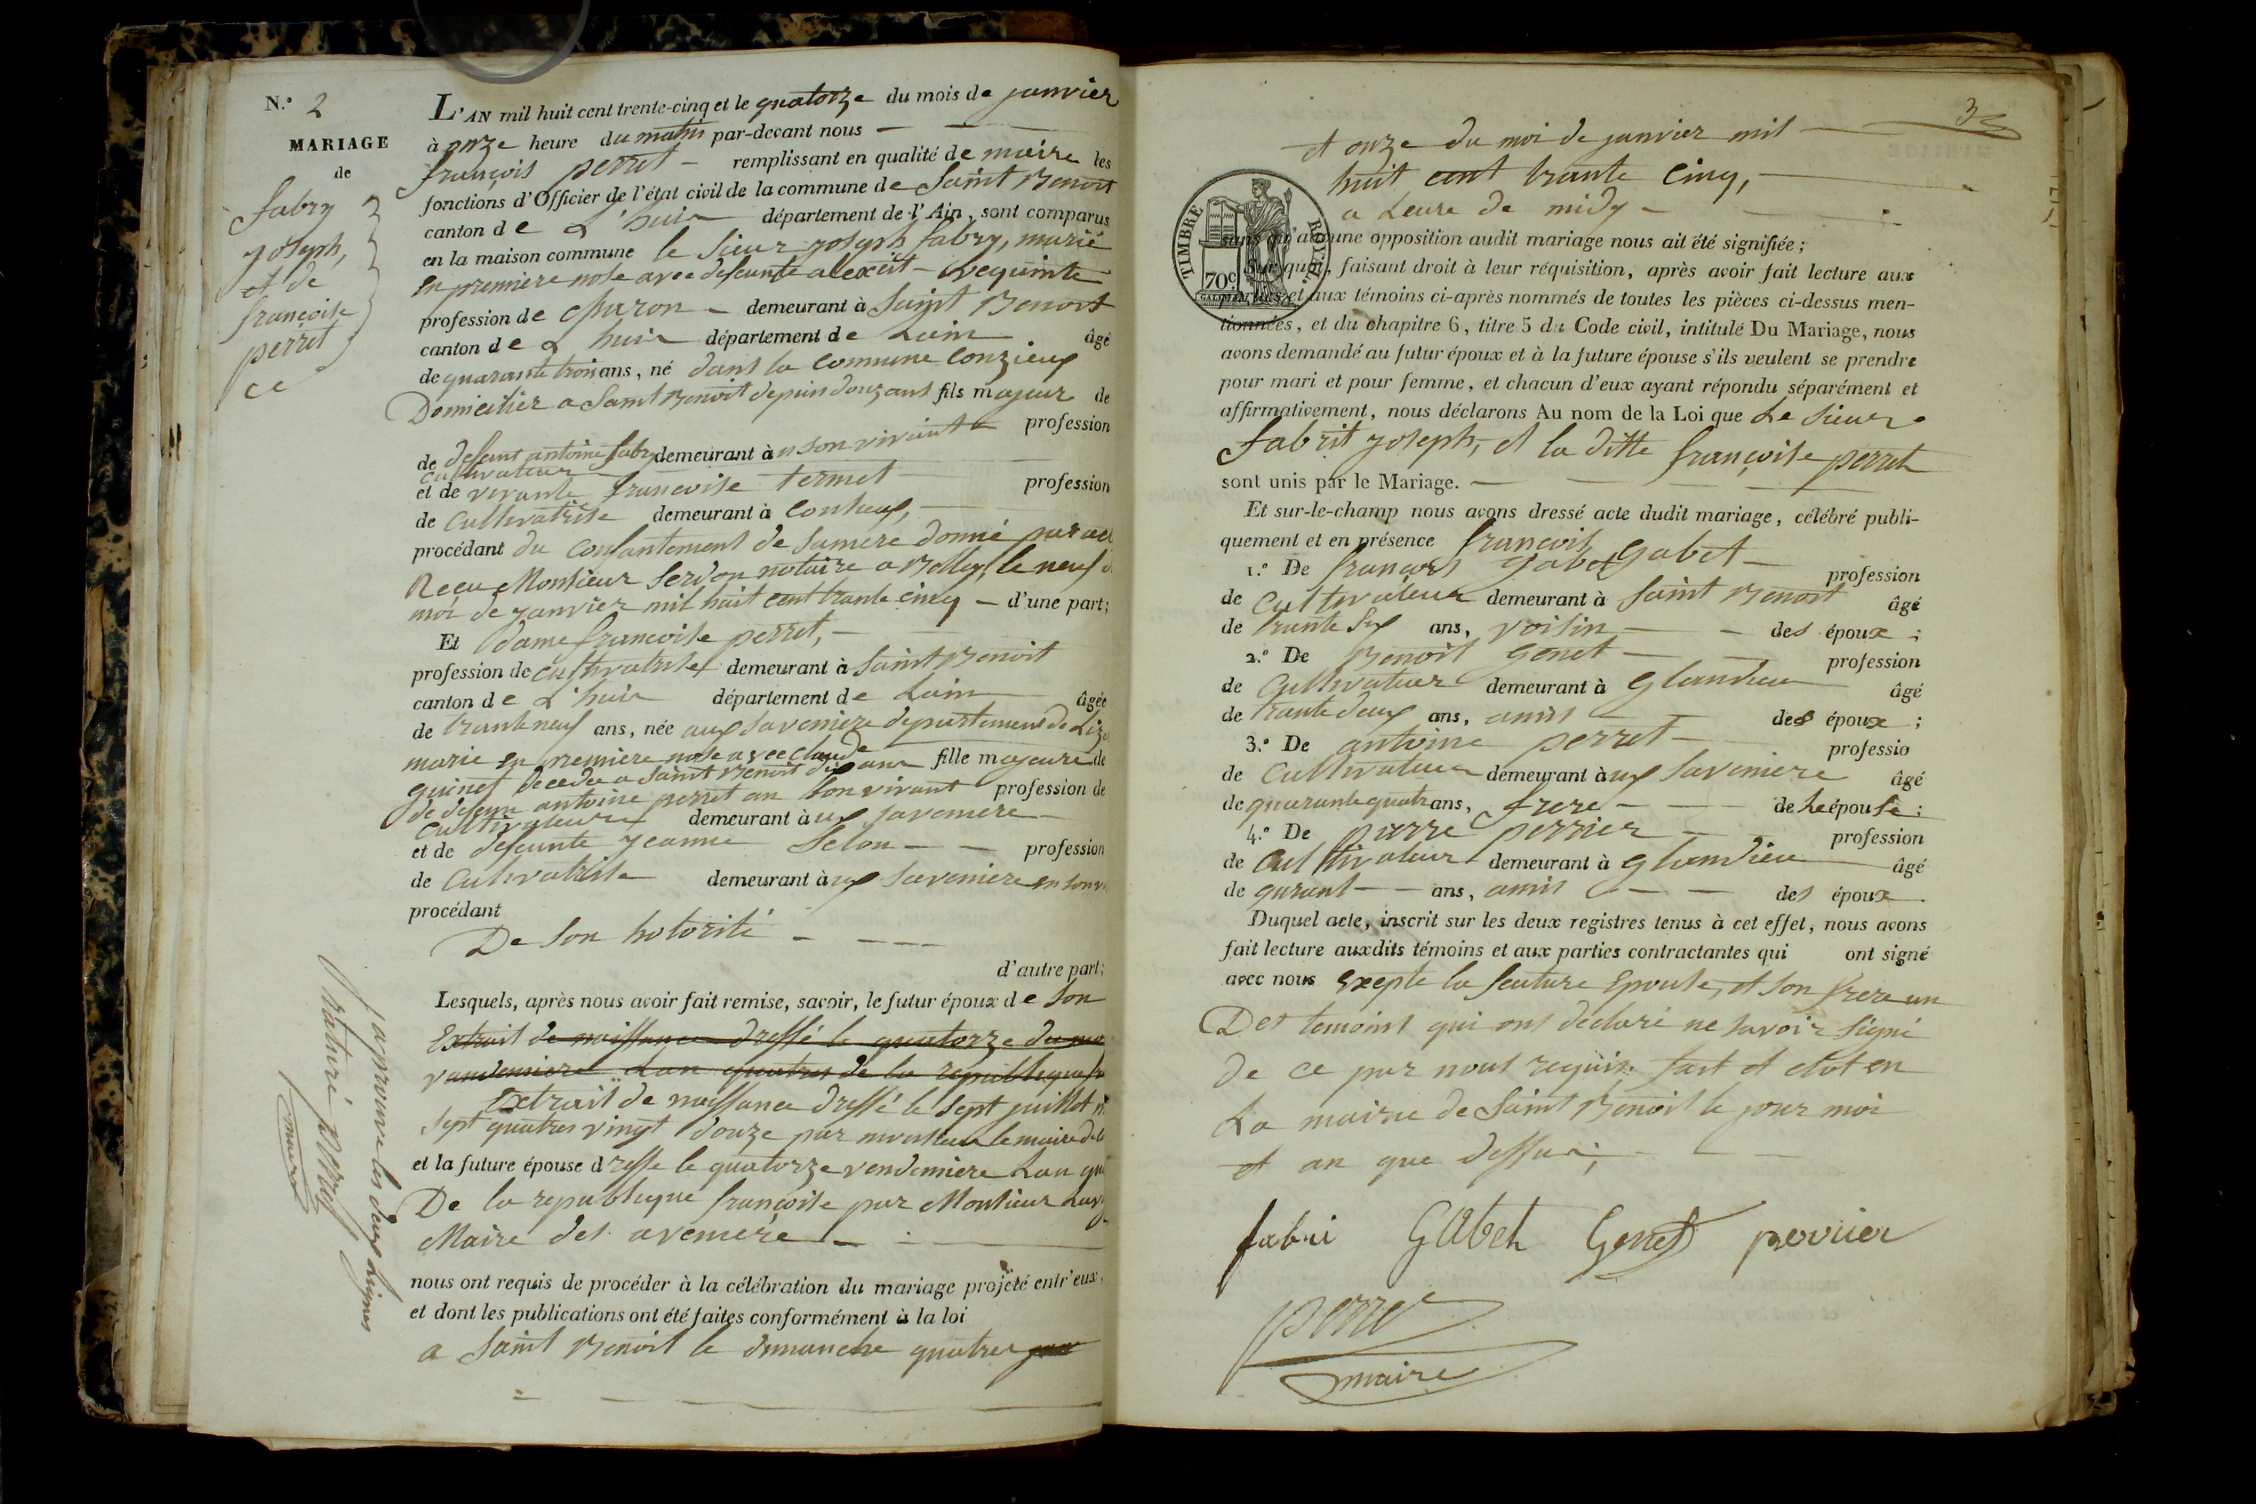 N.º 2
MARIAGE
de
fabry
joseph,
et de
françoise
perret
L'AN mil huit cent trente-cinq et le quatorze du mois de janvier
à onze heure du matin par-devant nous
françois perret - remplissant en qualité de maire les
fonctions d'Officier de l'état civil de la commune de Saint Benoit
canton de L'huis département de l'Ain, sont comparus
en la maison commune le Sieur joseph fabry, marié
en premiere nose avec defeunte
profession de charon - demeurant à Saint Benoit
canton de L huis département de Lain âgé
de quarante trois ans, né dans la Comune Conzieux
Domicilier a Saint Benoit depuis douz ans fils majeur de
profession
de defeunt antoine fabry demeurant à
cultivateur
et de vivante francoise termet profession
de Cultivatrise demeurant à
procédant du consantement de samere donné par
Recu Monsieur Servon notaire a Belley, le neuf
moi de janvier mil huit cent trante cinq - d'une part;
Et dame francoise perret,
profession de cultivatrise demeurant à Saint Benoit
canton de L'huis département de Lain âgée
de trante neuf ans, née aux savenière departement de
marie en premiere nose avec claude fille majeure de
decedee a Saint Benoit
de defeun antoine perret an son vivant profession de
cultivateur demeurant à ux savenière
et de defeunte jeanne profession
de Cultivatrise demeurant à ux savenière en
procédant
De son hotorité
d'autre part;
Lesquels, après nous avoir fait remise, savoir, le futur époux de son
Extrait de naissance dressé le quatorze du
vandemiere Lan quatres de la republique
Extrait de naissance dressé le sept juillet
sept quatres vingt douze par monsieur le maire de
et la future épouse dresse le quatorze vendemiere Lan
De la republique francoise par Monsieur
Maire des aveniere
nous ont requis de procéder à la célébration du mariage projeté entr'eux,
et dont les publications ont été faites conformément à la loi
a Saint Benoit le dimanche quatres
japrouve les deux Lignes
Raturé perret
maire
3
et onze du moi de janvier mil
huit cent trante Cinq,
a Leure de midy
TIMBRE ROYAL
70c
sans qu'aucune opposition audit mariage nous ait été signifiée;
Sur quoi, faisant droit à leur réquisition, après avoir fait lecture aux
parties et aux témoins ci-après nommés de toutes les pièces ci-dessus men-
tionnées, et du chapitre 6, titre 5 du Code civil, intitulé Du Mariage, nous
avons demandé au futur époux et à la future épouse s'ils veulent se prendre
pour mari et pour femme, et chacun d'eux ayant répondu séparément et
affirmativement, nous déclarons Au nom de la Loi que Le Sieur
fabrit joseph, et la ditte françoise perret
sont unis par le Mariage.
Et sur-le-champ nous avons dressé acte dudit mariage, célébré publi-
quement et en présence francois
1.º De francois gabet gabet profession
de Cultivateur demeurant à Saint Benoit âgé
de trante six ans, voisin des époux;
2.º De Benoit genet profession
de Cultivateur demeurant à glandieu âgé
de trante deux ans, amis des époux;
3.º De antoine perret professio
de Cultivateur demeurant à ux savenière âgé
de quarante quatr ans, frere de he épouse;
4.º De pierre perrier profession
de Cultivateur demeurant à glandieu âgé
de qurant ans, amis des époux
Duquel acte, inscrit sur les deux registres tenus à cet effet, nous avons
fait lecture auxdits témoins et aux parties contractantes qui ont signé
avec nous exepte la feuture epouse, et son frere un
Des temoins qui ont déclaré ne savoir signé
de ce par nous requis. fait et clot en
La mairie de Saint Benoit le jour moi
et an que dessus;
fabri Gabet Genet perrier
perret
maire